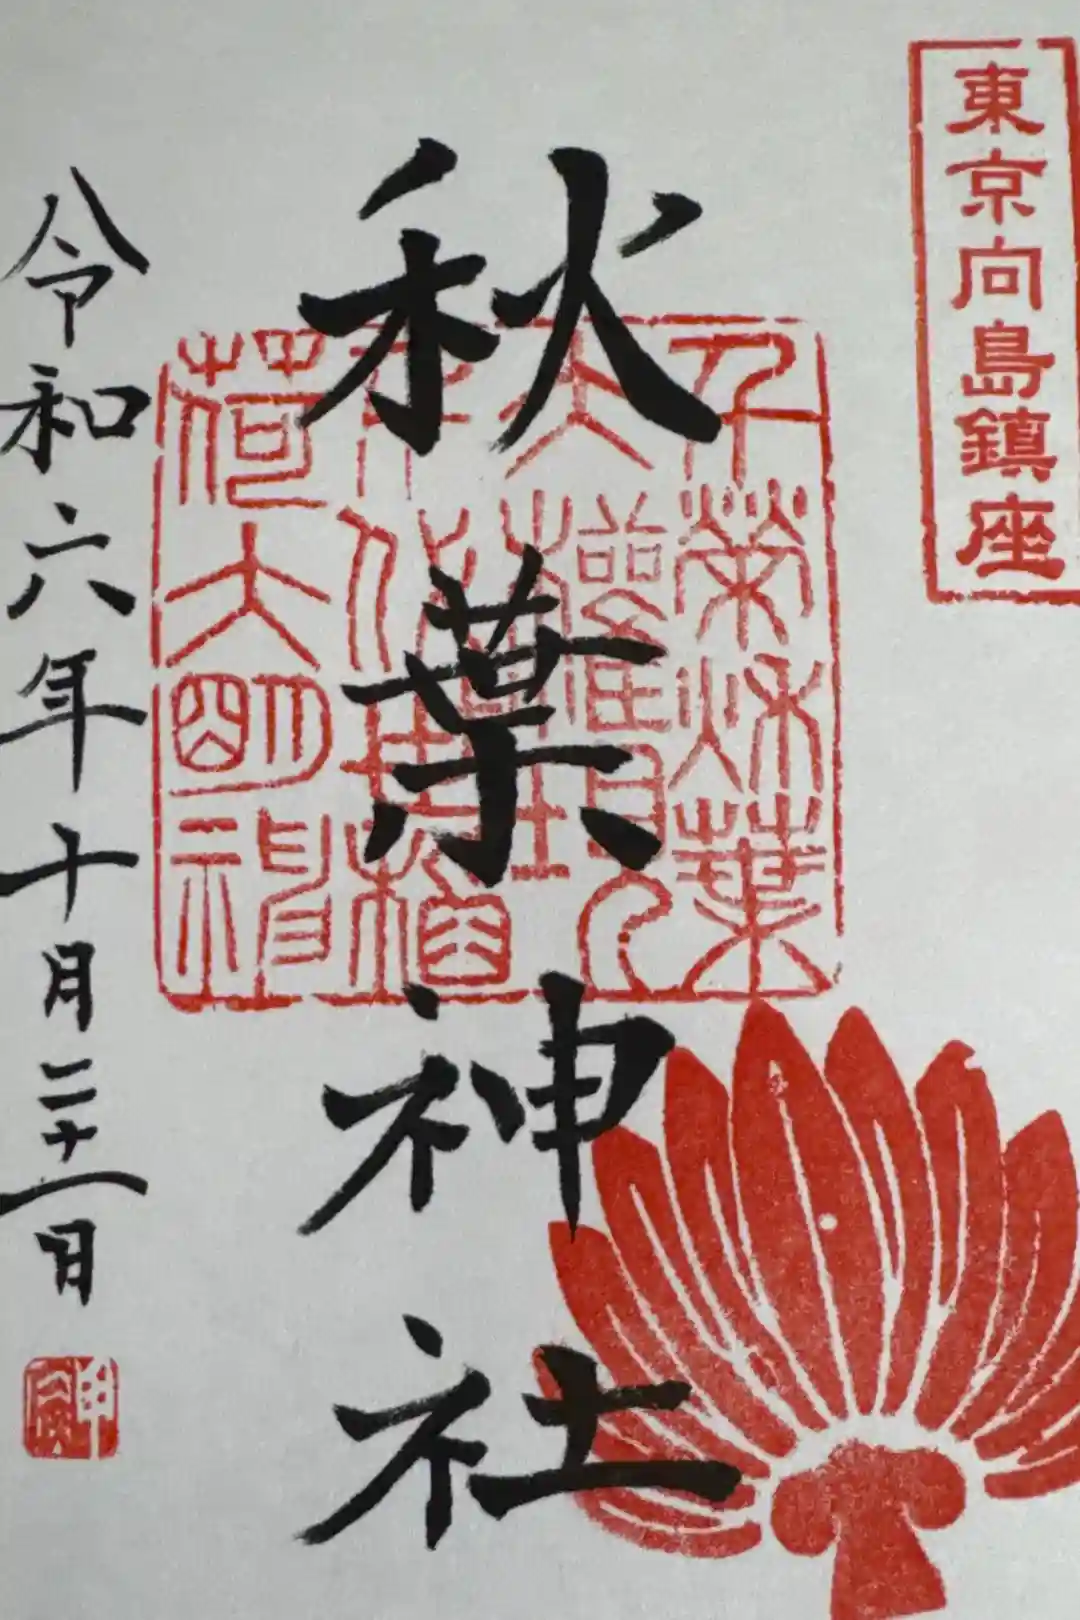 東京向島鎮座
秋葉神社
荷大明神
令和六年十月二十一日